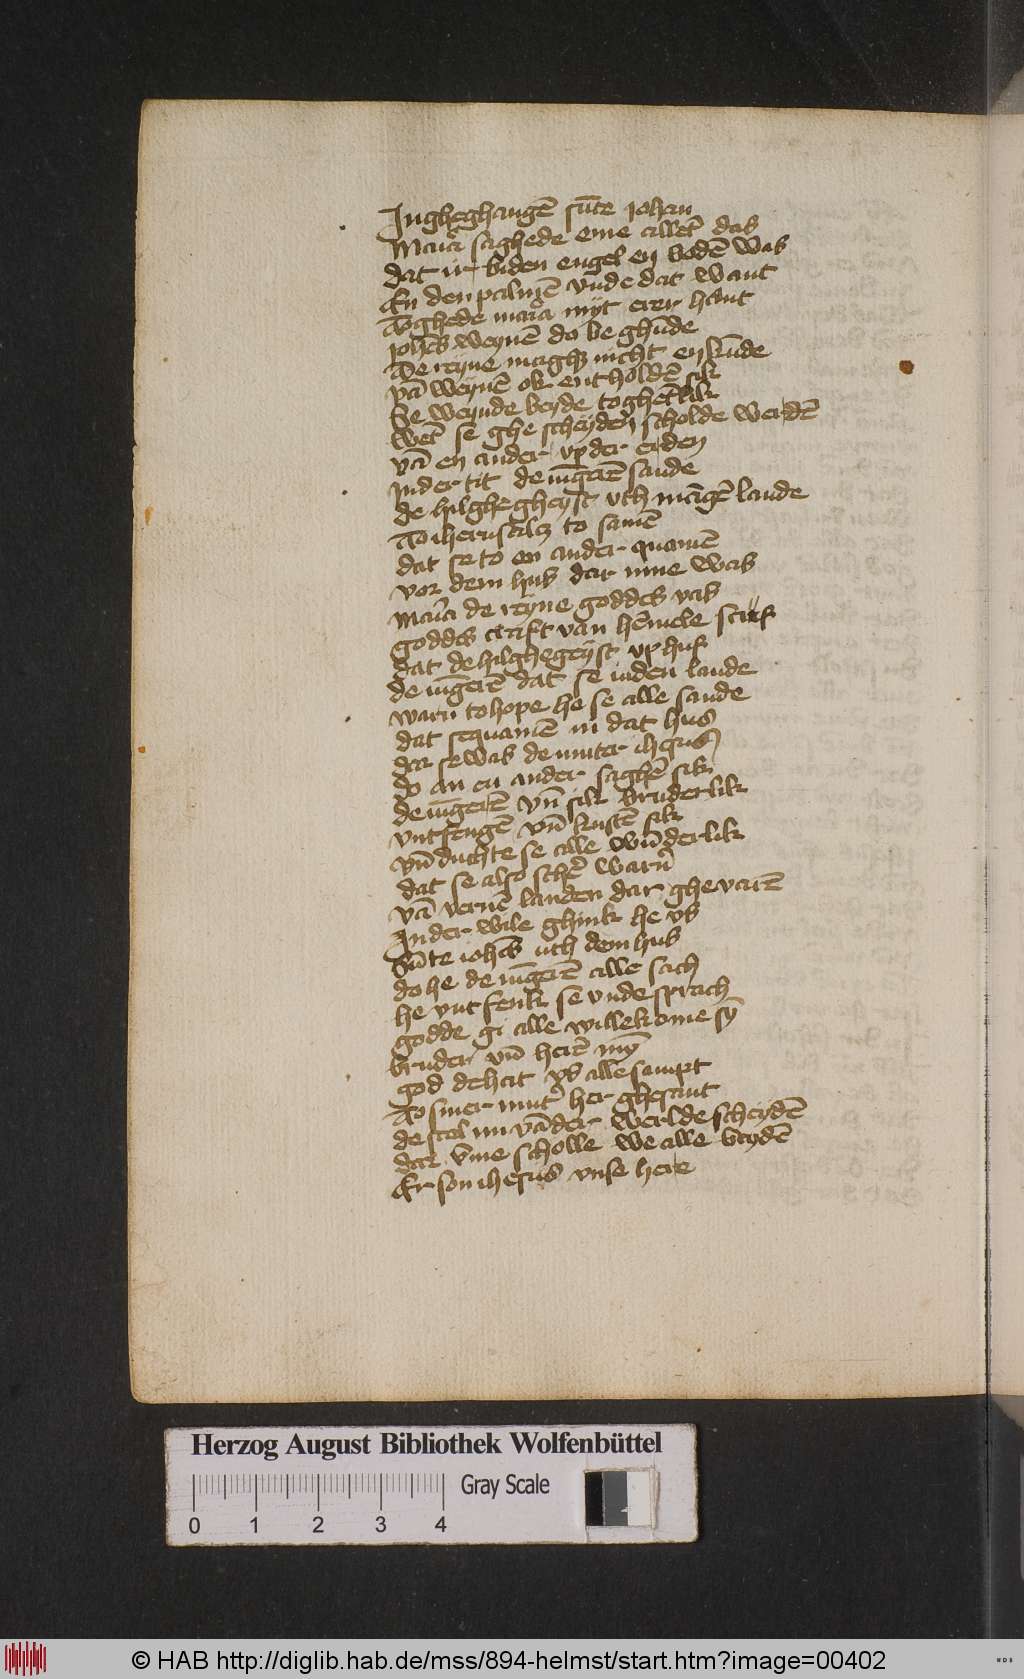 Jngheghangē sūte johan
Maria saghede eme alletͬ das
dat ir biden engel en bodē was
En den palmē vnde dat want
Toghede maria myt erer hant
johēs weynē do be ghūde
De reyne maghͭ nicht en kūde
vā weynē ok entholdē sik
Se weynde beyde toghelik
wēt se ghe scheyden scholde werdē
vā en ander vp der erden
Jnder tit de iūgerē sande
de hilghe gheyst vth māgē lande
To iherusalē to samē
dat se to en ander quamē
vor dem hus dar inne was
maria de reyne goddes vas
goddes craft van hēmele scuf
dat de hilghegeyst vp huf
de iūgerē dat se inden lande
warn tohope he se alle sande
dat sequamē in dat hus
dar sewas de muter ihesus
do an en ander saghē sik
de iūgerē vn̄ sik bruderlik
vntfengē vn̄ kustē sik
vn̄ duchte se alle wūderlik
dat se also schē warn
vā vernē landen dar ghevarē
Jnder wile ghink he vs
Sūte iohēs uth dem hus
do he de iūgerē alle sach
he vntfenk se vnde sprach
godde gi alle willekome sȳ
bruder vn̄ herē mȳ
god de hat vs alle sampt
To siner mut' her ghesant
de scal nu vā der werlde scheydē
dar v̄me scholle we alle beydē
Er son ihesus vnse here
Herzog August Bibliothek Wolfenbüttel
Gray Scale
0 1 2 3 4
© HAB http://diglib.hab.de/mss/894-helmst/start.htm?image=00402